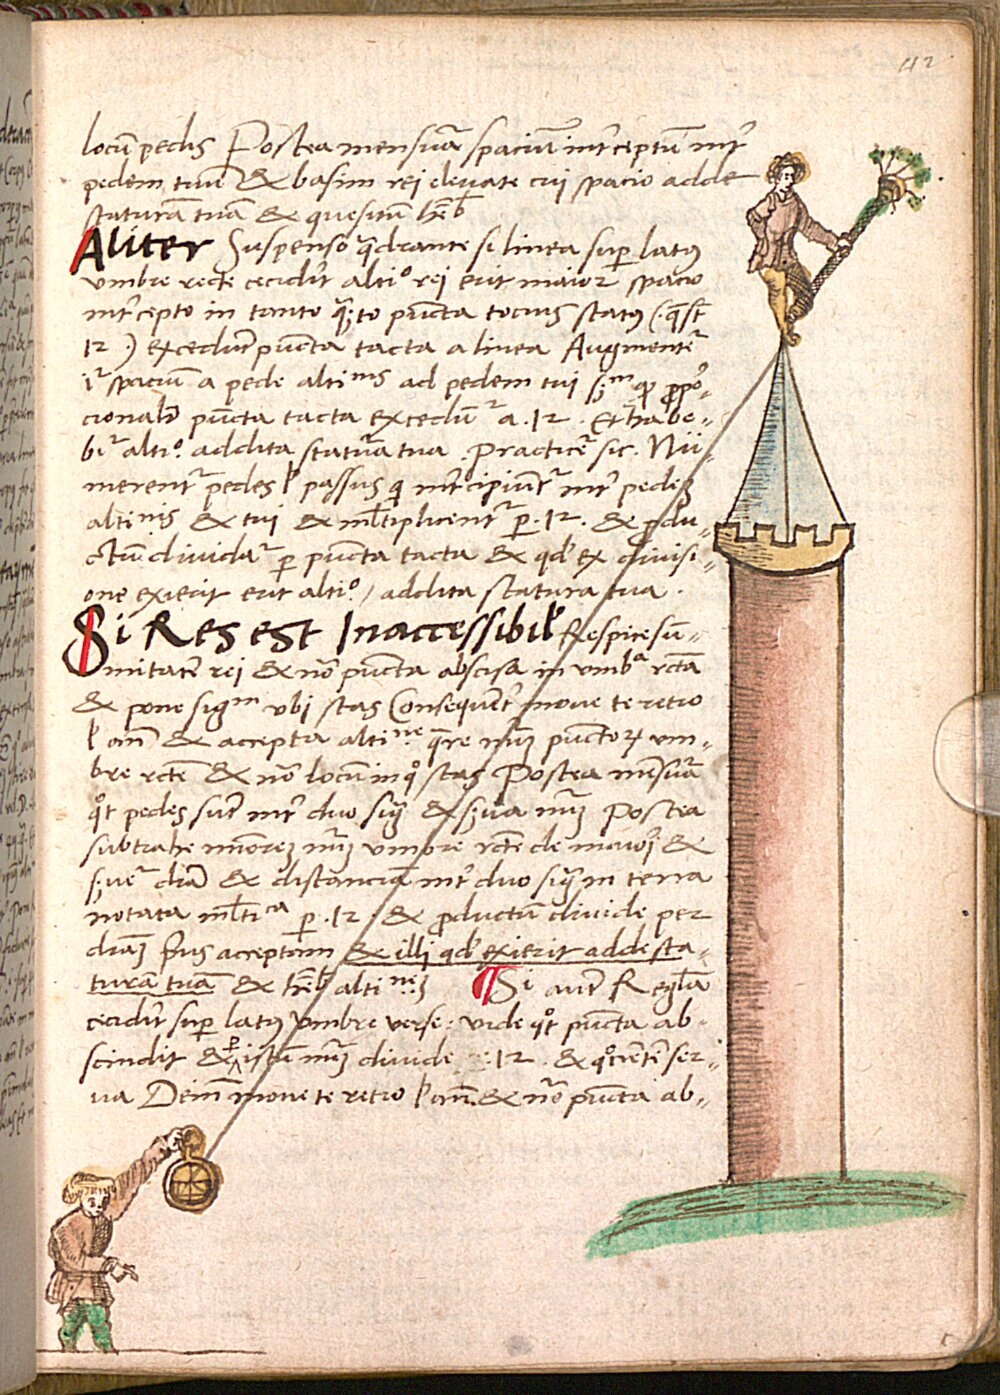 42
locū pedis Postea mensurā spaciū intˀceptū intˀ
pedem tuū & basim rei eleuate cui spacio adde
staturā tuā & quesitū hēb
Aliter Suspenso qͣdrante si linea super latus
vmbre recte cecidit altio rei erit maior spacio
intˀcepto in tanto qͣto puncta tocius status (.qͣ sͭ
12 .) excedūt puncta tacta a linea Augmentet
iͬ spaciū a pede altinis ad pedem tui sm qp prpo-
cionalr puncta tacta excedūt a .12 . Et habe-
biͬ altio. addita statura tua . Practicet sic. Nu-
merentͬ pedes l passus qi intˀcipiūtͬ intˀ pedes
altinis & tui & mltiplicentͬ p .12 . & pdu-
ctū diuidaͬ p puncta tacta & qd ex diuisi-
one exierit erit altio / addita statura tua .
Si Res est Inaccessibil Respice sū-
mitatē rei & no puncta abscisa in vmba rcta
& pone sigm vbi stas Consequentͬ moue te retro
l an & accepta altine qre nuȝ punctoꝝ vm-
bre rcte & no locū in qo stas Postea mēsura
qot pedes sut intˀ duo sig & sȝua nuȝ Postea
subtrahe minoreȝ nuȝ vmbre rcte de maiori &
sȝue dria & distanciā intˀ duo sig in terra
notata mltica p .12 . & productum diuide per
driaȝ prius acceptam & illi qd exierit adde sta-
turā tuā & hēb altineȝ ¶ Si aut Regla
cecidit super latus vmbre verse : vide qot puncta ab-
scindit & p istū nuȝ diuide .12 . & qocientē ser-
ua Dein moue te retro l an. & no puncta ab-